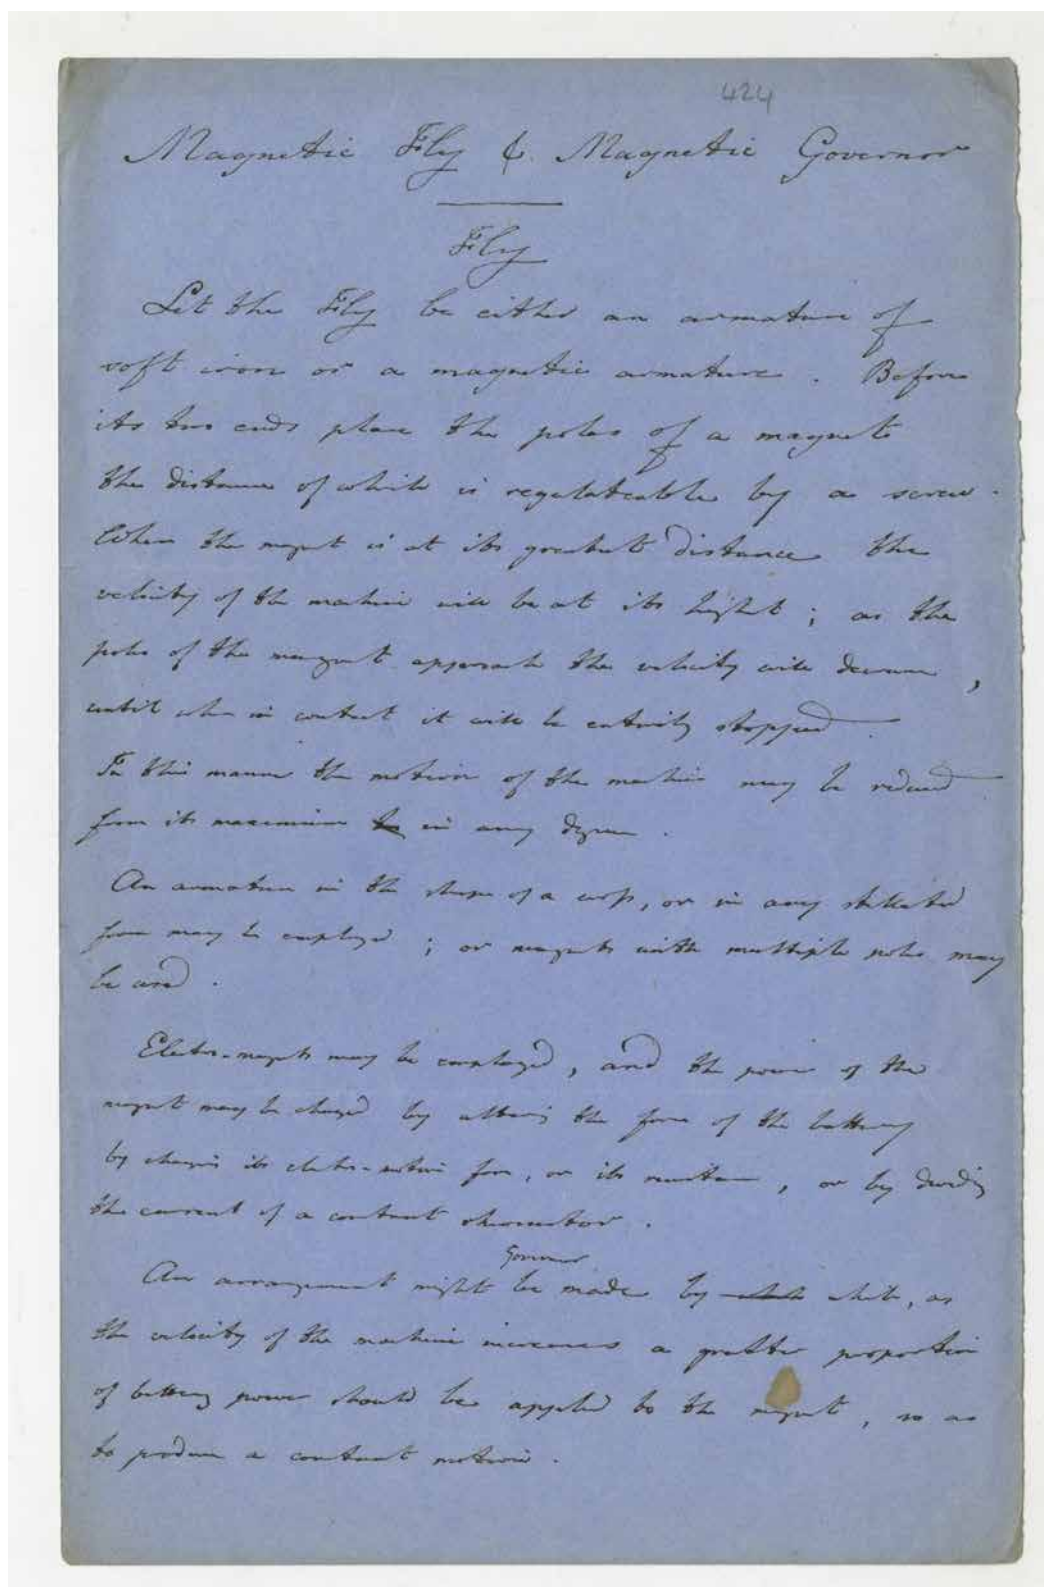 424
Magnetic Fly & Magnetic Governor
Fly
Let the Fly be either an armature of
soft iron or a magnetic armature. Before
its two ends place the poles of a magnet
the distance of which is regulateable by a screw.
When the magnet is at its greatest distance the
velocity of the machine will be at its hight; as the
poles of the magnet approach the velocity will decrease,
until when in contact it will be entirely stopped.
In this manner the motion of the machine may be reduced
from its maximum to in any degree.
An armature in the shape of a cross, or in any stellated
form may be employed; or magnets with multiple poles may
be used.
Electro-magnets may be employed, and the power of the
magnet may be changed by altering the force of the battery
by changing its electro-motive force, or its resistance, or by dividing
the current of a constant rheomotor.
Governor
An arrangement might be made by which, as
the velocity of the machine increases a greater proportion
of battery power should be applied to the magnet, so as
to produce a constant motion.